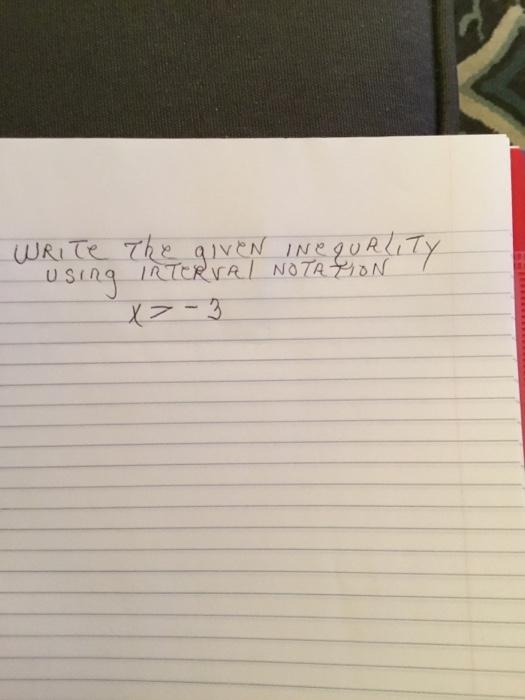 WRiTe The giVeN INeQUALiTY
USing INTeRVAl NOTATION
x > - 3